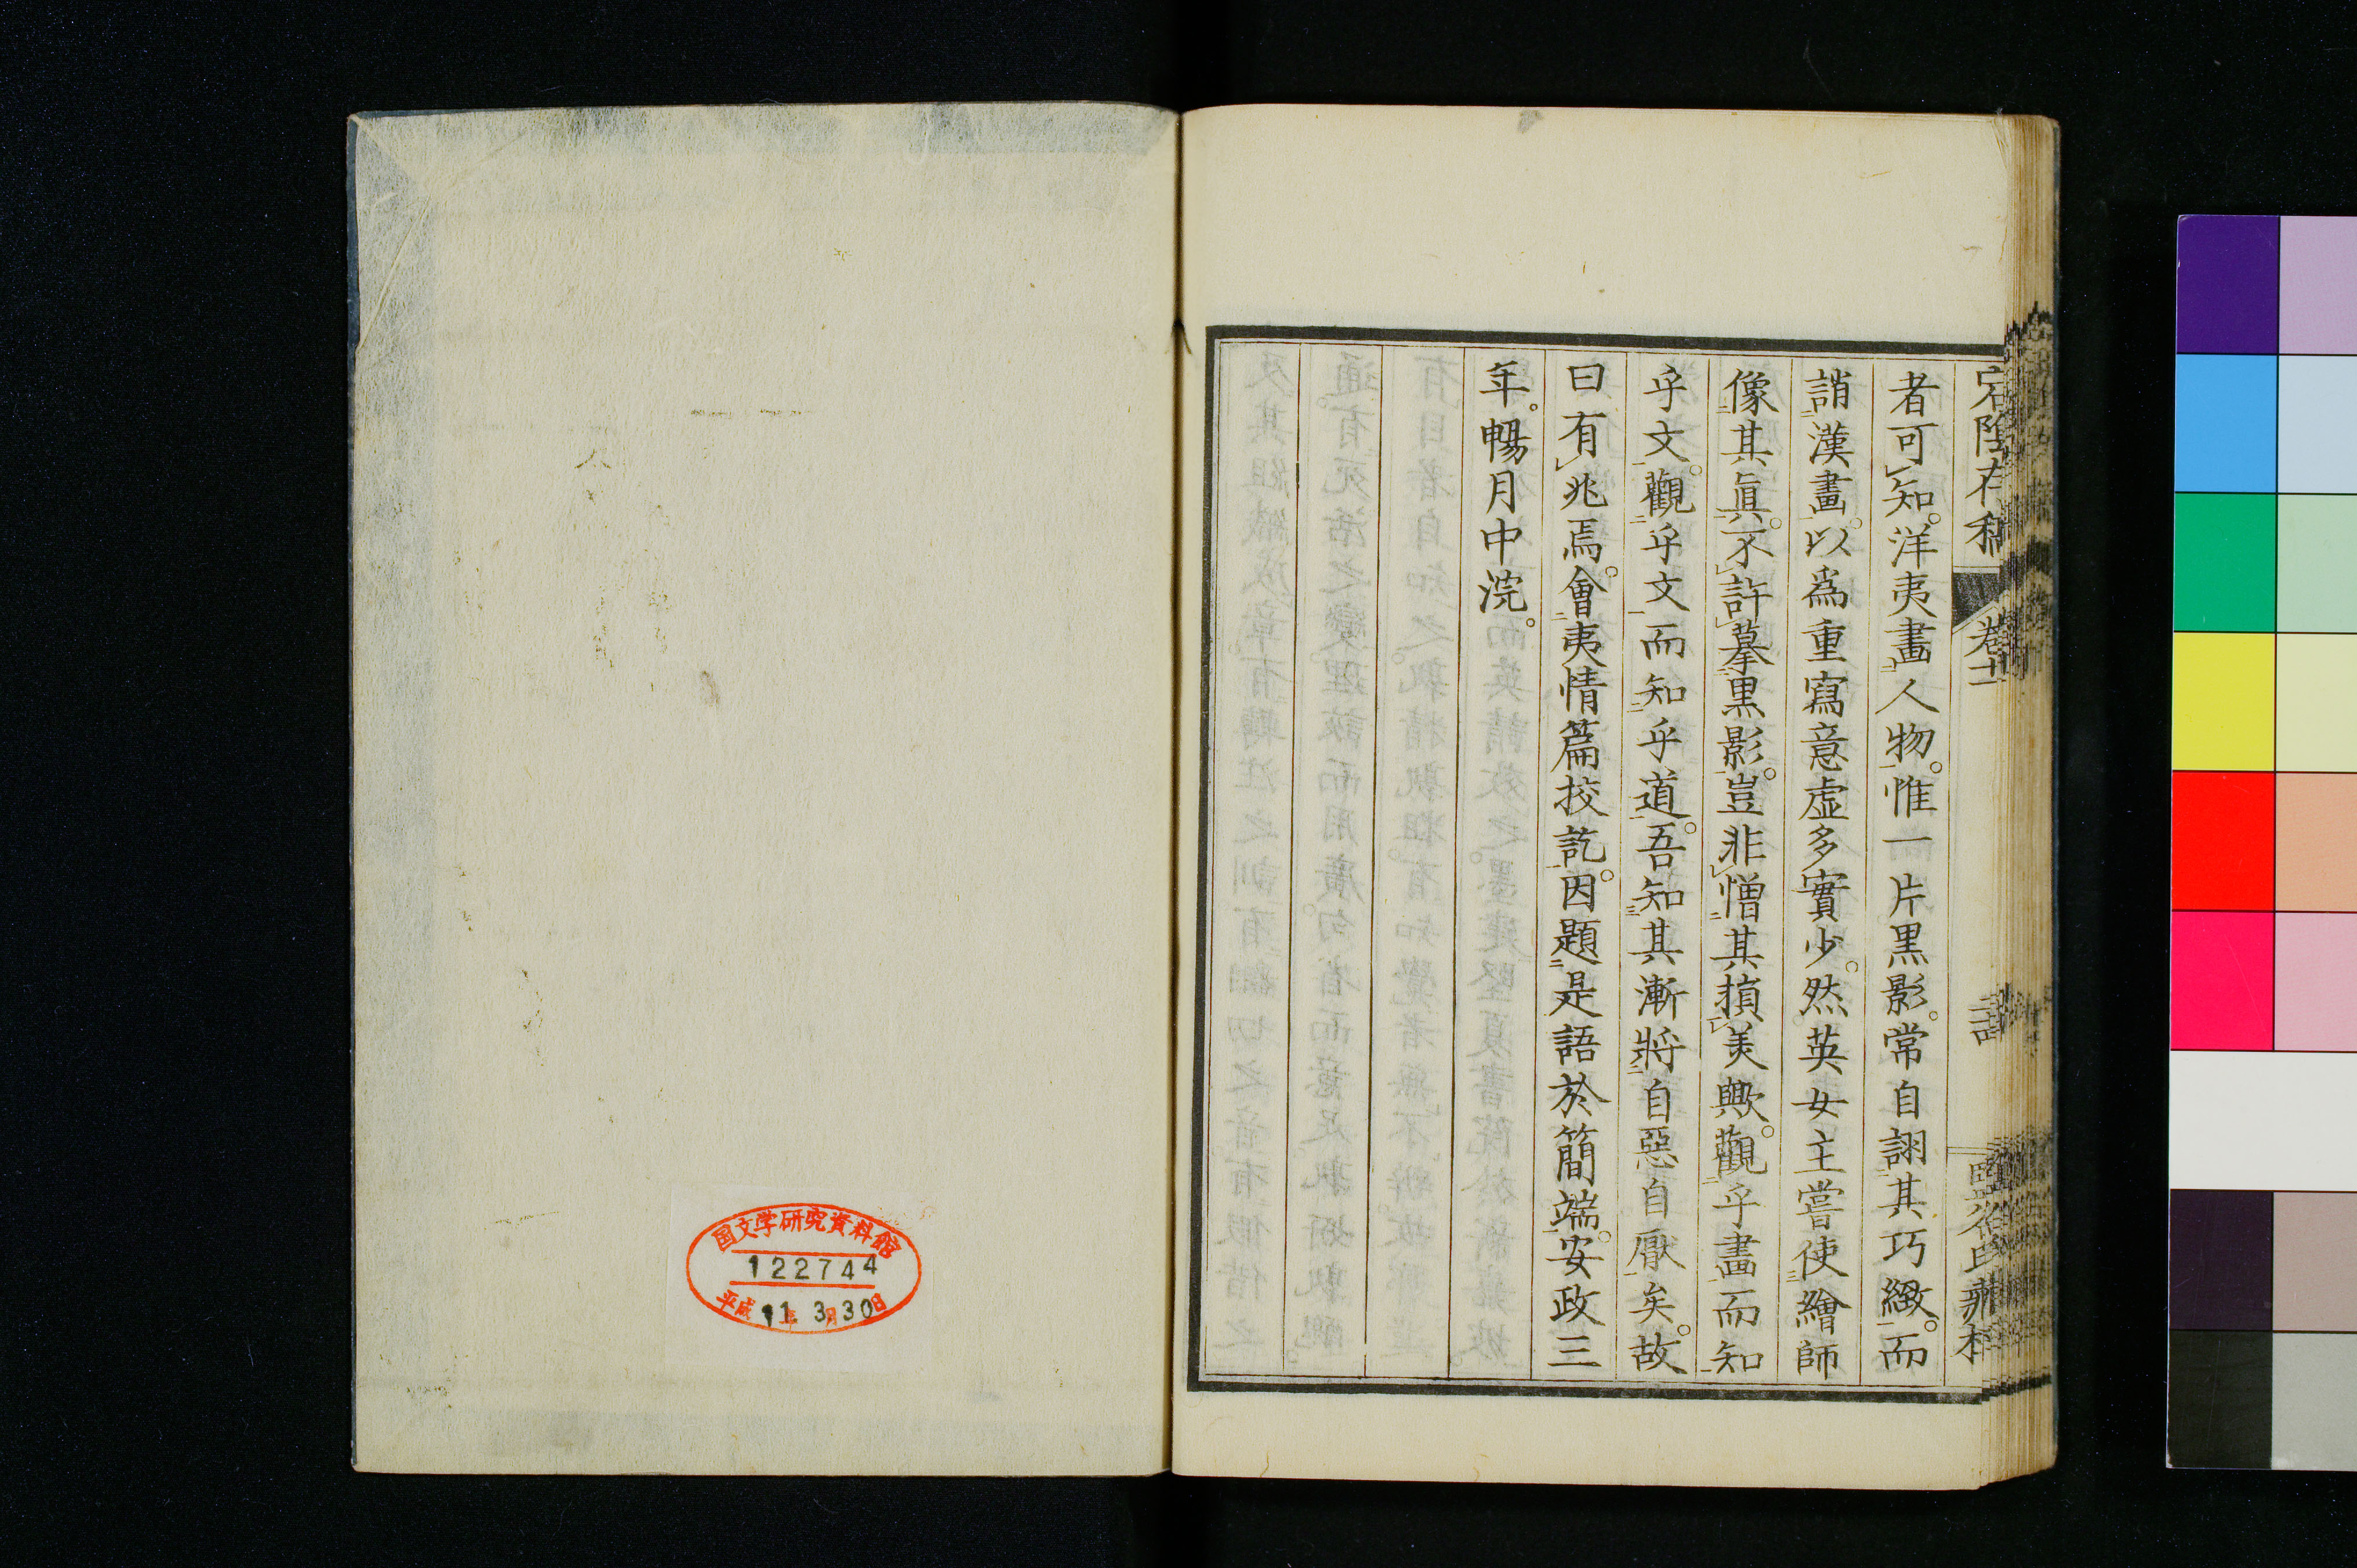 宕陰存稿 卷十二
者可知。洋夷畫人物。惟一片黑影。常自詡其巧緻。而
誚漢畫。以爲重寫意虛多實少。然英女主嘗使繪師
像其眞。不許摹黑影。豈非憎其損美歟。觀乎畫而知
乎文。觀乎文而知乎道。吾知其漸將自惡自厭矣。故
曰有兆焉。會夷情篇挍訖。因題是語於簡端。安政三
年。暢月中浣。
国文学研究資料館
122744
平成11年3月30日